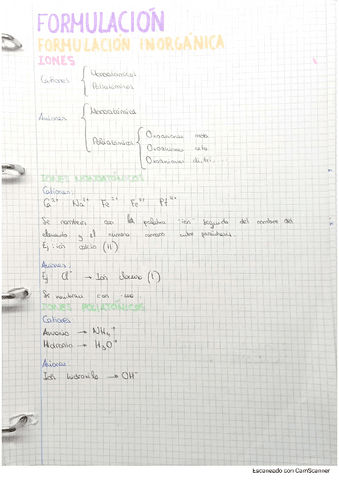 FORMULACIÓN
FORMULACIÓN INORGÁNICA
IONES
Cationes Monoatómicos
Poliatómicos
Aniones Monoatómicos
Poliatómicos Oxoaniones meta
Oxoaniones orto
Oxoaniones di, tri..
IONES MONOATÓMICOS
Cationes:
Ca²⁺ Na⁺ Fe²⁺ Fe³⁺ Pt⁴⁺
Se nombran con la palabra ion seguido del nombre del
elemento y el número romano entre paréntesis.
Ej: ion calcio (II)
Aniones:
Ej Cl⁻ → Ion cloruro (1)
Se nombran con uro
IONES POLIATÓMICOS
Cationes
Amonio → NH₄⁺
Hidronio → H₃O⁺
Aniones
Ion hidroxilo → OH⁻
Escaneado con CamScanner